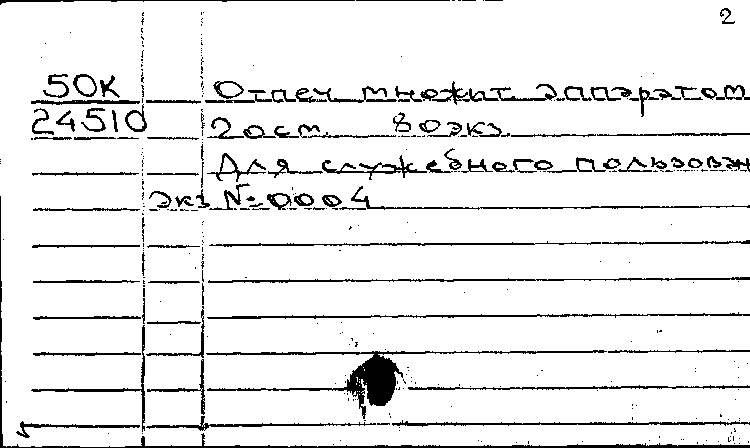 2
50К Отпеч множит. аппаратом
24510 20 ст. 80 экз.
Для служебного пользован
экз №0004